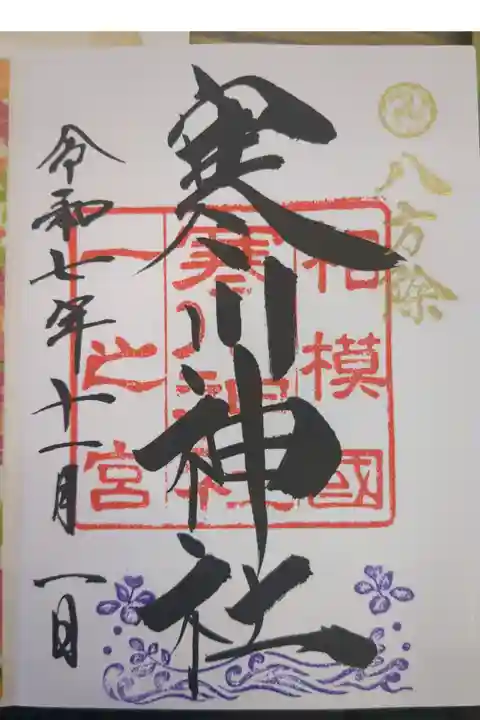 八方除
寒川神社
相模國
寒川神社
一之宮
令和七年十一月一日